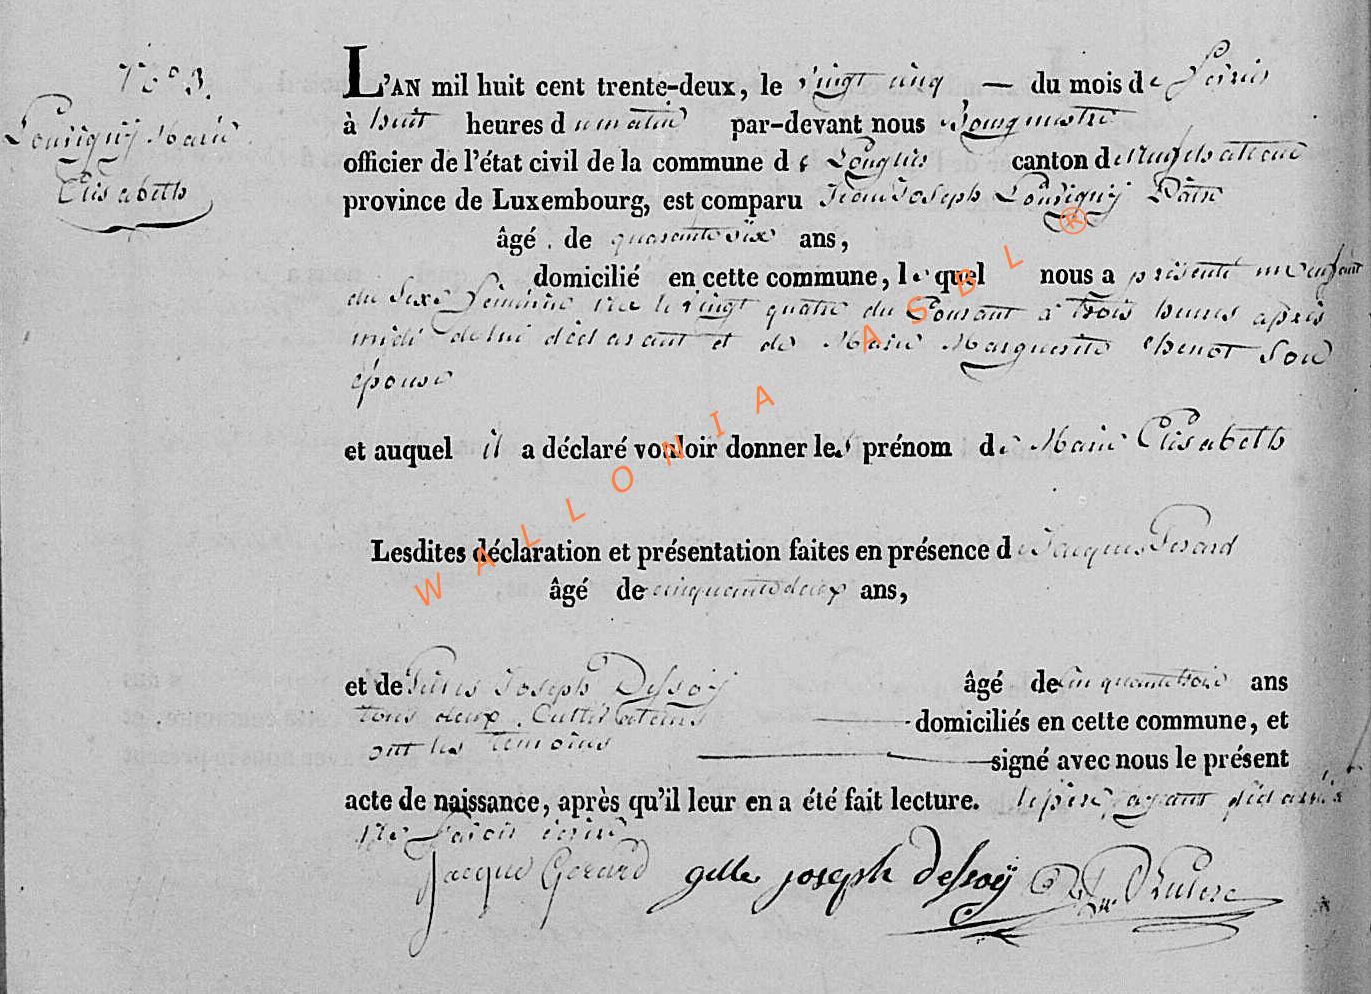 N° 3.
Louviguy Marie
Elisabeth
L'AN mil huit cent trente-deux, le vingt cinq — du mois de Février
à huit heures du matin par-devant nous Bourgmestre
officier de l'état civil de la commune de Longlier canton de Neufchateau
province de Luxembourg, est comparu Jean Joseph Louviguy Pâtre
âgé de quarante six ans,
domicilié en cette commune, lequel nous a présenté un enfant
du Sexe féminin née le vingt quatre du Courant à trois heures après
midi de lui déclarant et de Marie Marguerite Chenot Son
épouse
et auquel il a déclaré vouloir donner les prénom de Marie Elisabeth
Lesdites déclaration et présentation faites en présence de Jacques Gerard
âgé de cinquante deux ans,
et de Joseph Dessoÿ âgé de cinquante trois ans
tous deux Cultivateurs domiciliés en cette commune, et
ont les temoins signé avec nous le présent
acte de naissance, après qu'il leur en a été fait lecture. le père ayant déclaré
ne savoir écrire
Jacque Gerard gille joseph dessoÿ
WALLONIA ASBL ®